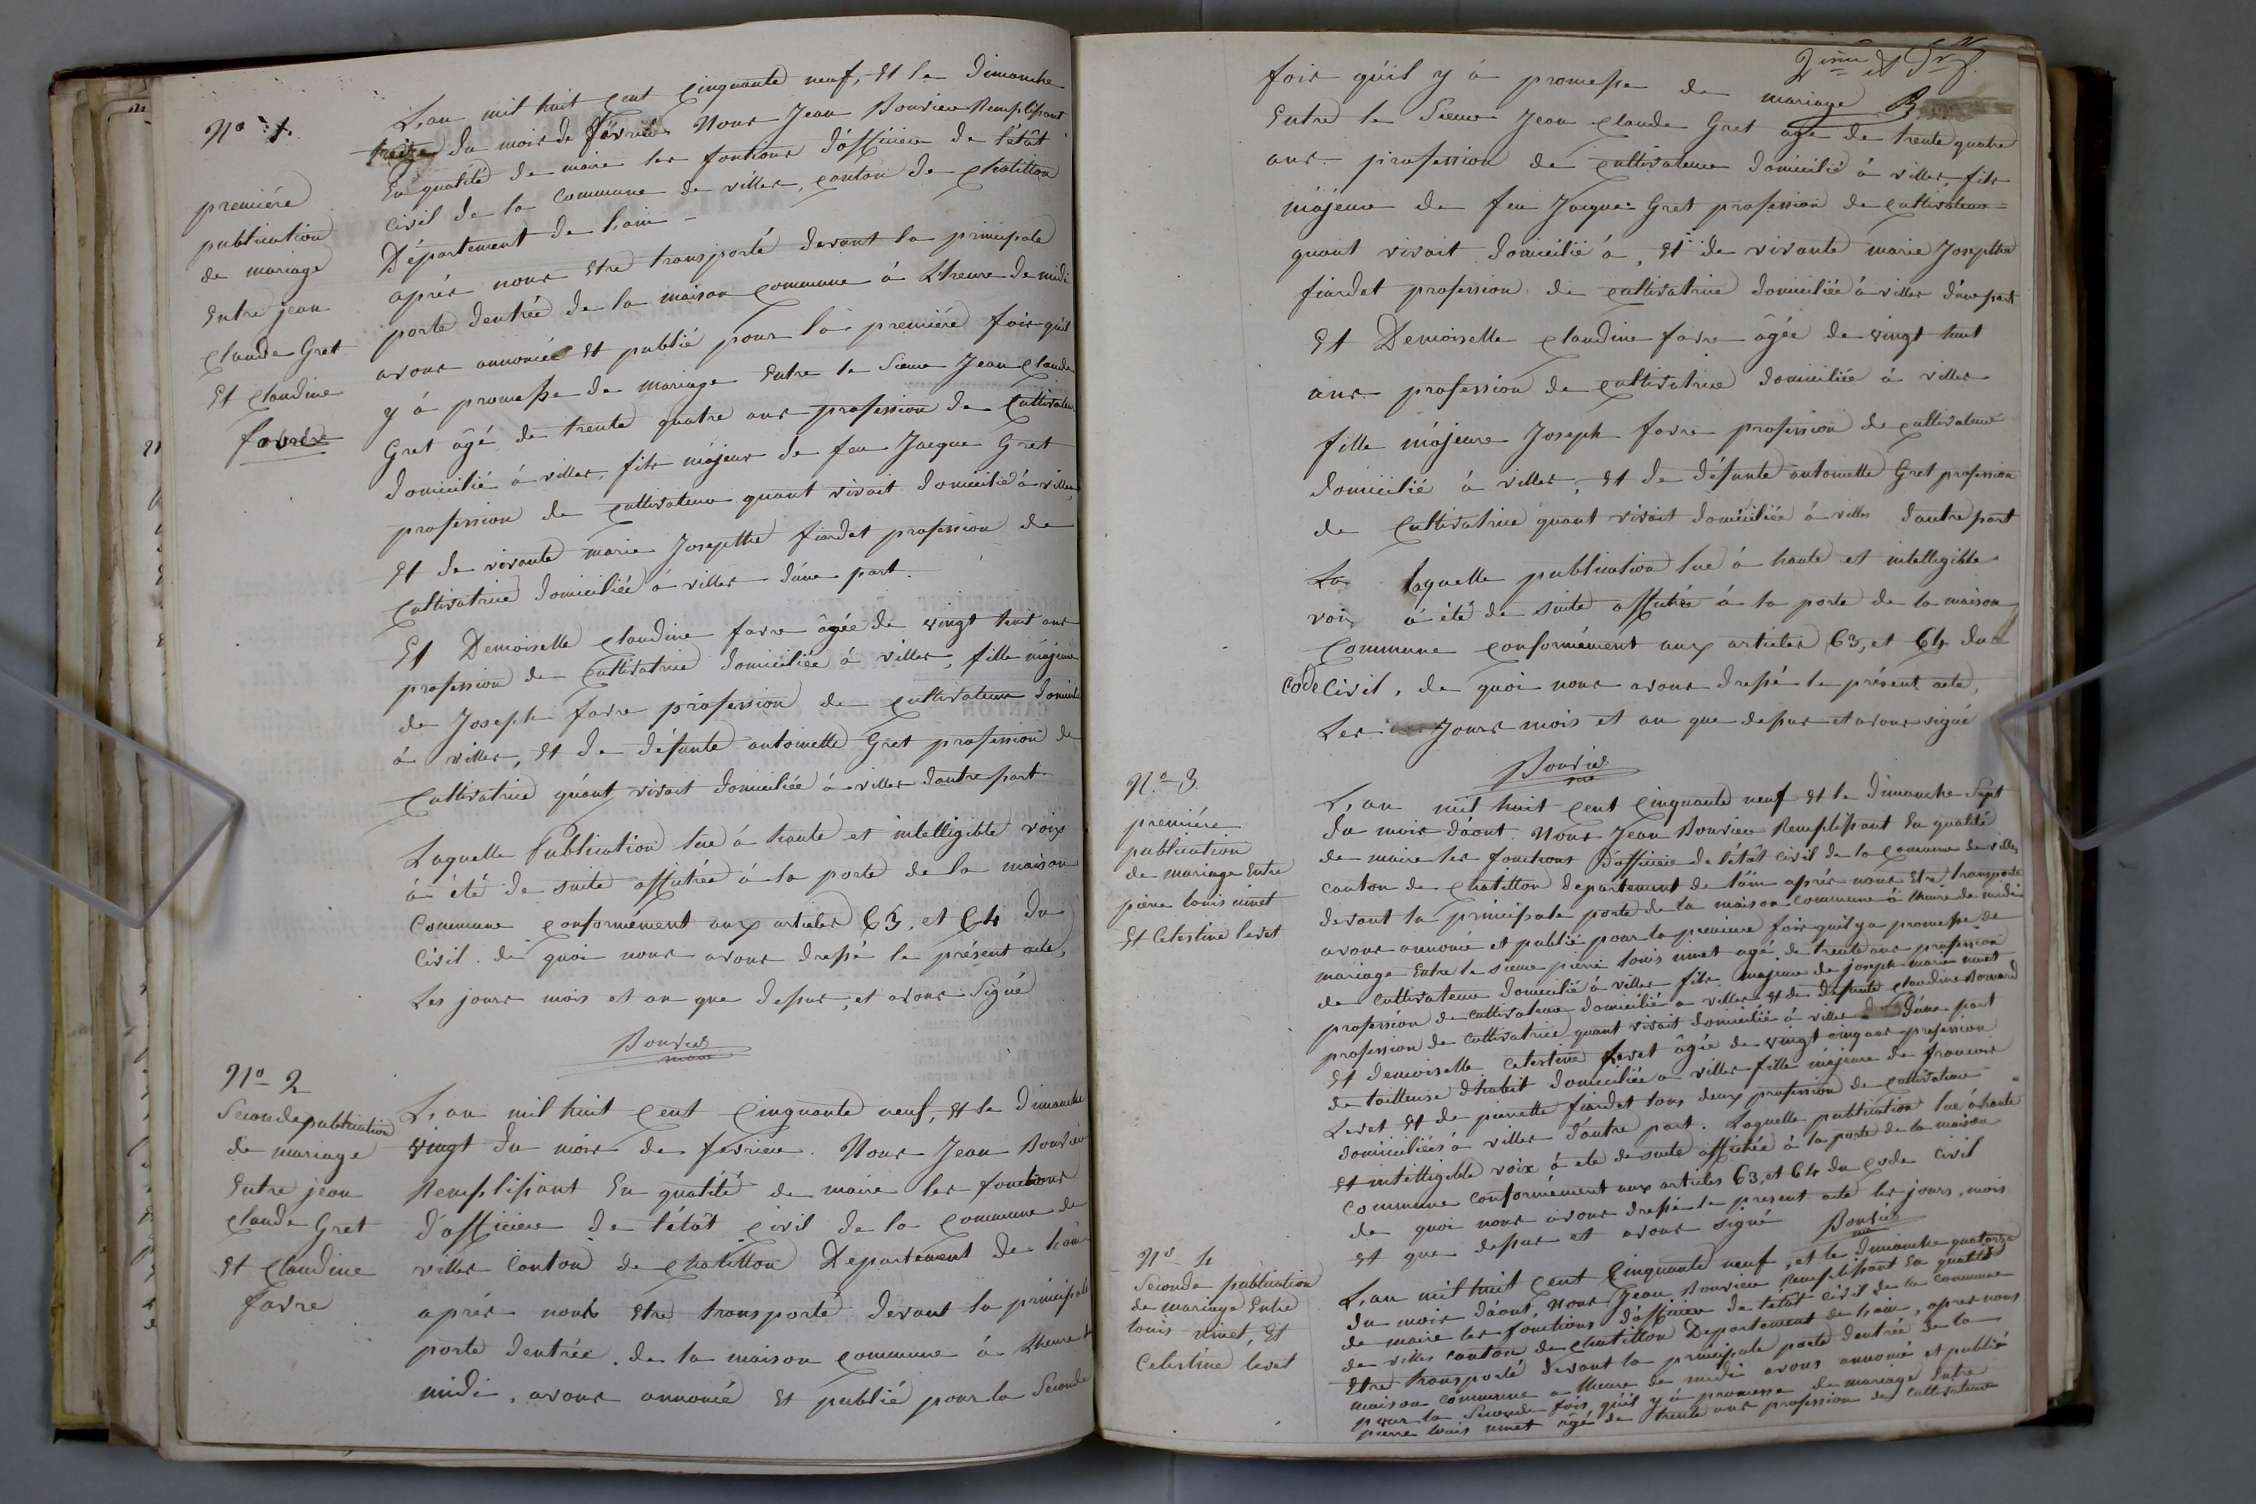 No 1.
première
publication
de mariage
Entre jean
claude Gret
Et claudine
favre
L'an mil huit Cent Cinquante neuf, Et le dimanche
treize du mois de février Nous Jean Bouvier Remplissant
En qualité de maire les fontions d'officier de l'état
Civil de la Commune de villes, canton de chatillon
Département de l'ain -
après nous Etre transporté devant la principale
porte dentrée de la maison commune à l'heure de midi
avons annoncée Et publié pour la première fois qu'il
y à promesse de mariage Entre le Sieur Jean claude
Gret âgé de trente quatre ans profession de Cultivateur
domicilié à villes, fils majeur de feu Jacque Gret
profession de cultivateur quant vivait domicilié à villes,
Et de vivante marie Josepthe fiardet profession de
Cultivatrice domiciliée à villes d'une part.
Et Demoiselle claudine favre âgée de vingt huit ans
profession de Cultivatrice domiciliée à villes, fille majeure
de Joseph favre profession de cultivateur domicilié
à villes, Et de défunte antoinette Gret profession de
Cultivatrice quant vivait domiciliée à villes d'autre part.
Laquelle Publication lue à haute et intelligible voix
à été de suite affichée à la porte de la maison
Commune conformément aux articles 63, et 64 du
Civil. de quoi nous avons dressé le présent acte,
Les jours mois et an que dessus, et avons Signé
Bouvier
maire
No 2
Seconde publication
de mariage
Entre jean
claude Gret
Et claudine
favre
L'an mil huit Cent Cinquante neuf, Et le dimanche
vingt du mois de février. Nous Jean Bouvier
Remplissant En qualité de maire les fonctions
d'officier de l'état civil de la Commune de
villes Canton de chatillon Departement de l'ain
après nous Etre transporté devant la principale
porte dentrée. de la maison commune à l'heure de
midi, avons annoncé Et publié pour la Seconde
2ième et
fois qu'il y à promesse de mariage
Entre le Sieur Jean claude Gret âgé de trente quatre
ans - profession de cultivateur domicilié à villes, fils
majeur de feu Jacque Gret profession de cultivateur
quant vivait domicilié à, Et de vivante marie Josepthe
fiardet profession de cultivatrice domiciliée à villes d'une part
Et Demoiselle claudine favre âgée de vingt huit
ans profession de cultivatrice domiciliée à villes
fille majeure Joseph favre profession de cultivateur
domicilié à villes, Et de défunte antoinette Gret profession
de Cultivatrice quant vivait domiciliée à villes d'autre part
La laquelle publication lue à haute et intelligible
voix à été de suite affichée à la porte de la maison
Commune conformément aux articles 63, et 64 du
Code Civil, de quoi nous avons dressé le présent acte,
Les Jours mois et an que dessus et avons signé
Bouvier
No 3.
première
publication
de mariage Entre
pierre louis ninet
Et Celestine levet
L'an mil huit Cent Cinquante neuf Et le dimanche Sept
du mois d'août. Nous Jean Bouvier Remplissant En qualité
de maire les fonctions D'officier de l'état Civil de la Commune de villes
canton de chatillon departement de l'ain après nous Etre transporté
devant la principale porte de la maison commune à l'heure de midi
avons annoncé et publié pour la première fois qu'il y a promesse de
mariage Entre le sieur pierre louis ninet agé de trente ans profession
de cultivateur domicilié à villes fils majeur de joseph marie ninet
profession de cultivateur domicilié a villes Et de défunte claudine Bornard
profession de cultivatrice quant vivait domiciliée à villes d'une part
Et demoiselle Celestine Levet âgée de vingt cinq ans profession
de tailleuse d'habit domiciliée a villes fille majeure de francois
Levet Et de pierrette fiardet tous deux profession de cultivateur
domiciliés à villes d'autre part. Laquelle publication lue à haute
et intelligible voix à ete de suite affichée à la porte de la maison
Commune conformément aux articles 63, et 64 du Code Civil
de quoi nous avons dressé le present acte les jours, mois
Et que dessus et avons signé Bouvier
No 4
Seconde publication
de mariage Entre
louis ninet, Et
Celestine levet
L'an mil huit cent Cinquante neuf, et le dimanche quatorze
du mois d'août, Nous Jean Bouvier Remplissant En qualité
de maire les fonctions d'officier de l'état Civil de la Commune
de villes canton de chatillon Departement de l'ain, apres nous
Etre transporté devant la principale porte dentrée de la
maison commune a l'heure de midi avons annoncé et publié
pour la Seconde fois qu'il y à promesse de mariage Entre
pierre louis ninet âgé de trente ans profession de cultivateur